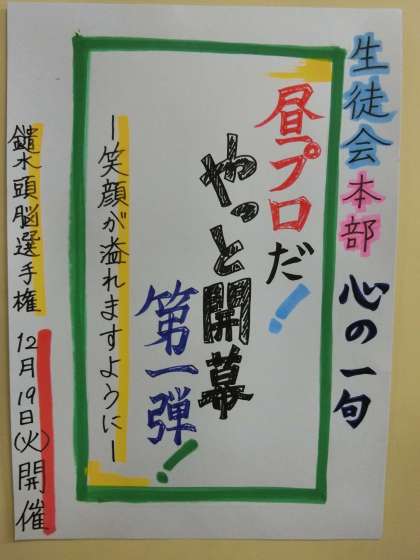 生徒会本部 心の一句
昼プロだ!
やっと開幕
第一弾!
ー笑顔が溢れますようにー
鑓水頭脳選手権 12月19日(火)開催